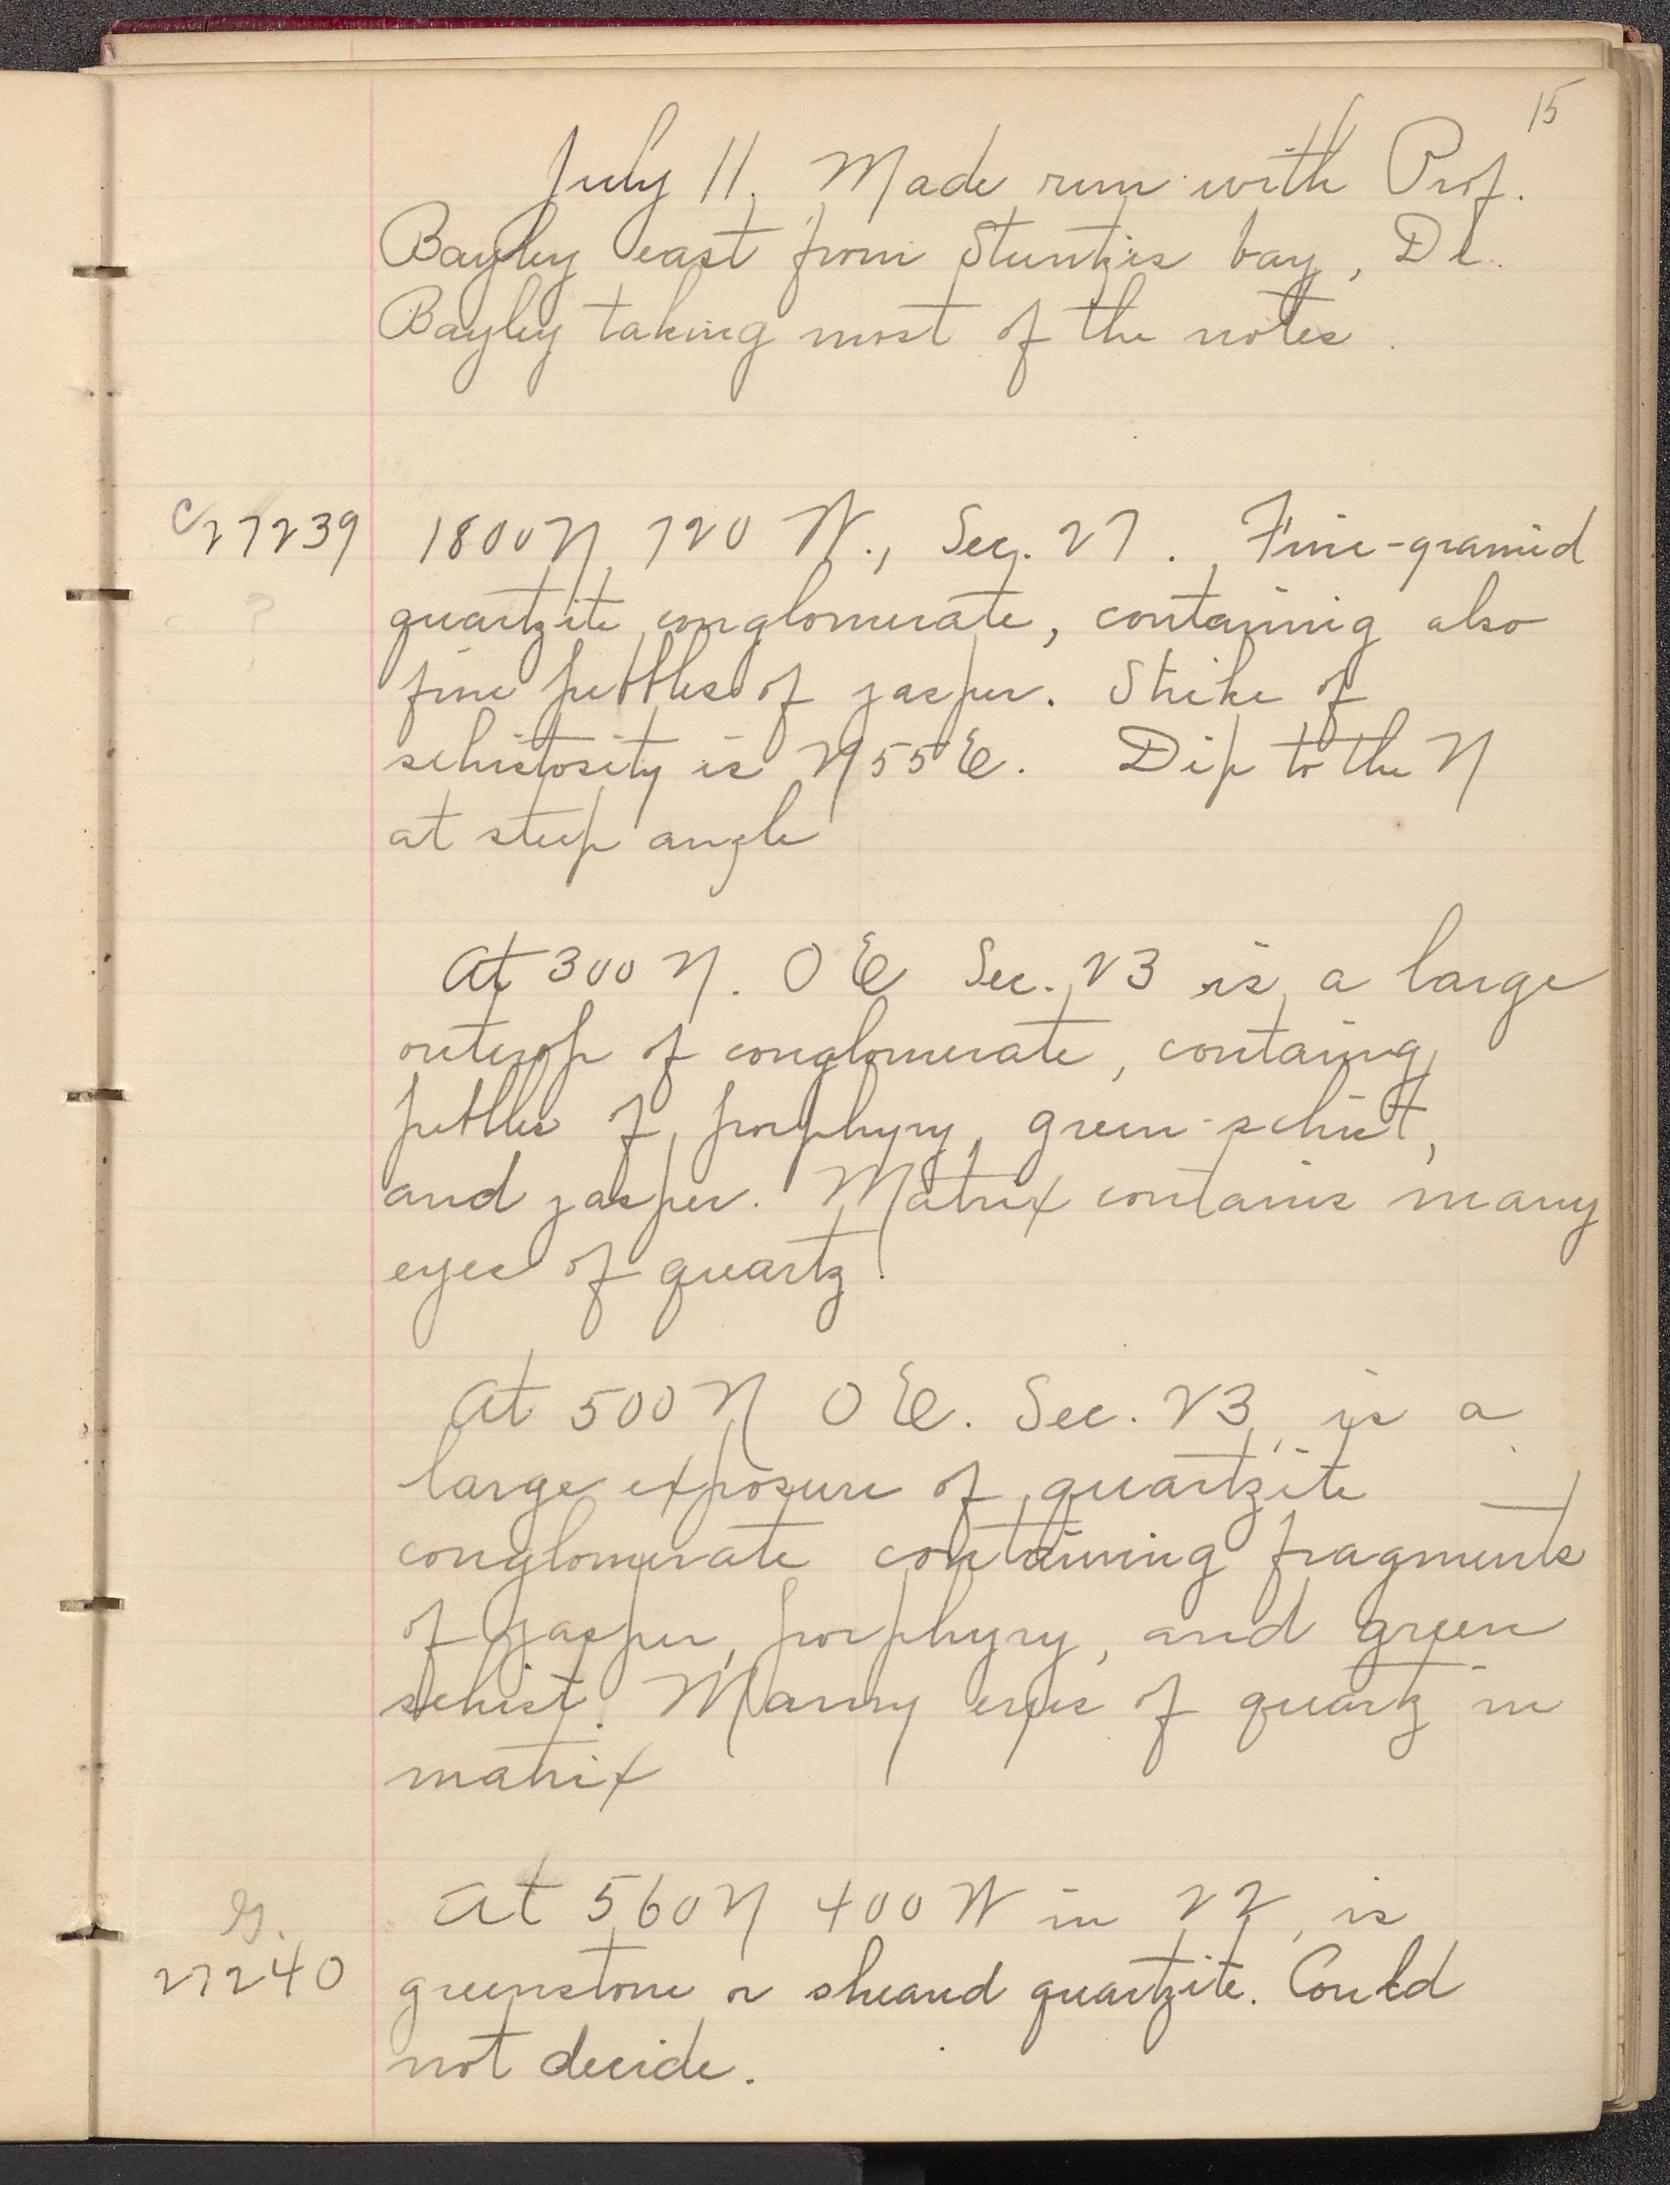 15
July 11. Made run with Prof.
Bayley east from Stuntzes bay, Dr.
Bayley taking most of the notes.
C 27239 1800 N 720 W., Sec. 27. Fine-grained
quartzite conglomerate, containing also
fine pebbles of jasper. Strike of
schistosity is N 55 E. Dip to the N
at steep angle
At 300 N. 0 E Sec. 23 is a large
outcrop of conglomerate, containg
pebbles of porphyry, green-schist,
and jasper. Matrix contains many
eyes of quartz.
At 500 N 0 E. Sec. 23, is a
large exposure of quartzite
conglomerate containing fragments
of jasper, porphyry, and green
schist. Many eyes of quartz in
matrix
G. At 560 N 400 W in 22, is
27240 greenstone or sheared quartzite. Could
not decide.